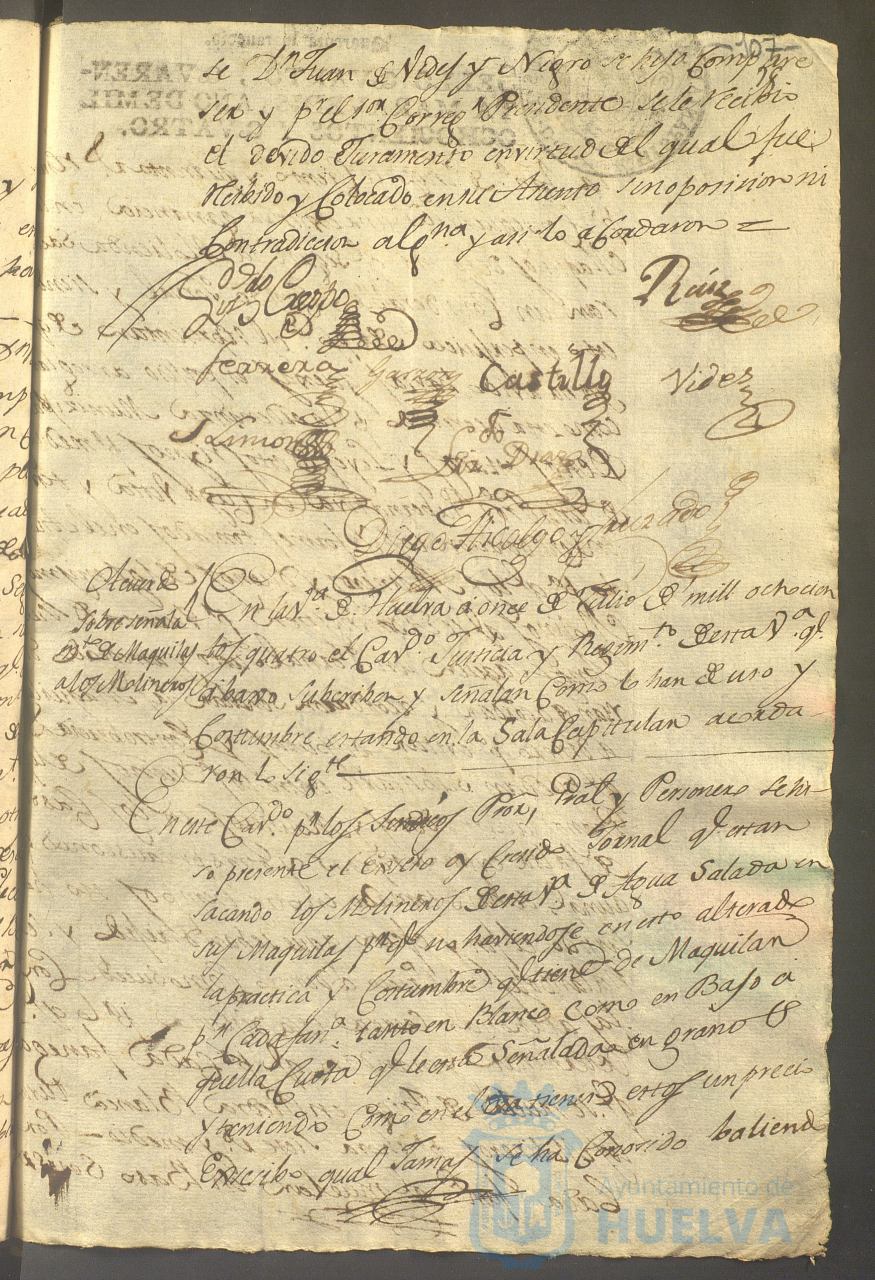 107
se Dn Juan de Vides y Negro se hiso Compare
ser y pr el Sor Corregr Presidente se le recibio
el devido Juramento en virtud del qual fue
recibido y Colocado en su Asiento sin oposicion ni
Contradiccion algna y asi lo acordaron =
Crespo
Ruiz
Ferrera Garzon Castillo Vides
Limon Diaz
Diego Hidalgo y Cruzado
Acuerdo
Sobre señala
mto de Maquilas
a los Molineros
En la Va de Huelva a once de Julio de mill ochocien
tos quatro el Cavdo Justicia y Regimto de esta Va qe
abaxo subscriben y señalan como lo han de uso y
Costumbre estando en la Sala Capitular acorda
ron lo sigte
En este Cavdo pr los Sindicos Pror, Gral y Personero se hi
so presente el exceso y Crecido Jornal qe estan
sacando los Molineros de esta Va de Agua Salada en
sus Maquilas pr qe no haviendose en esto alterado
la practica y Costumbre qe tiene de Maquilar
pr Cada fana tanto en Blanco como en Baso a
quella Cuota qe le esta Señalada en grano
y teniendo Como en el dia tienen estos un precio
Excesibo qual Jamas se ha Conosido baliendo
Ayuntamiento de
HUELVA